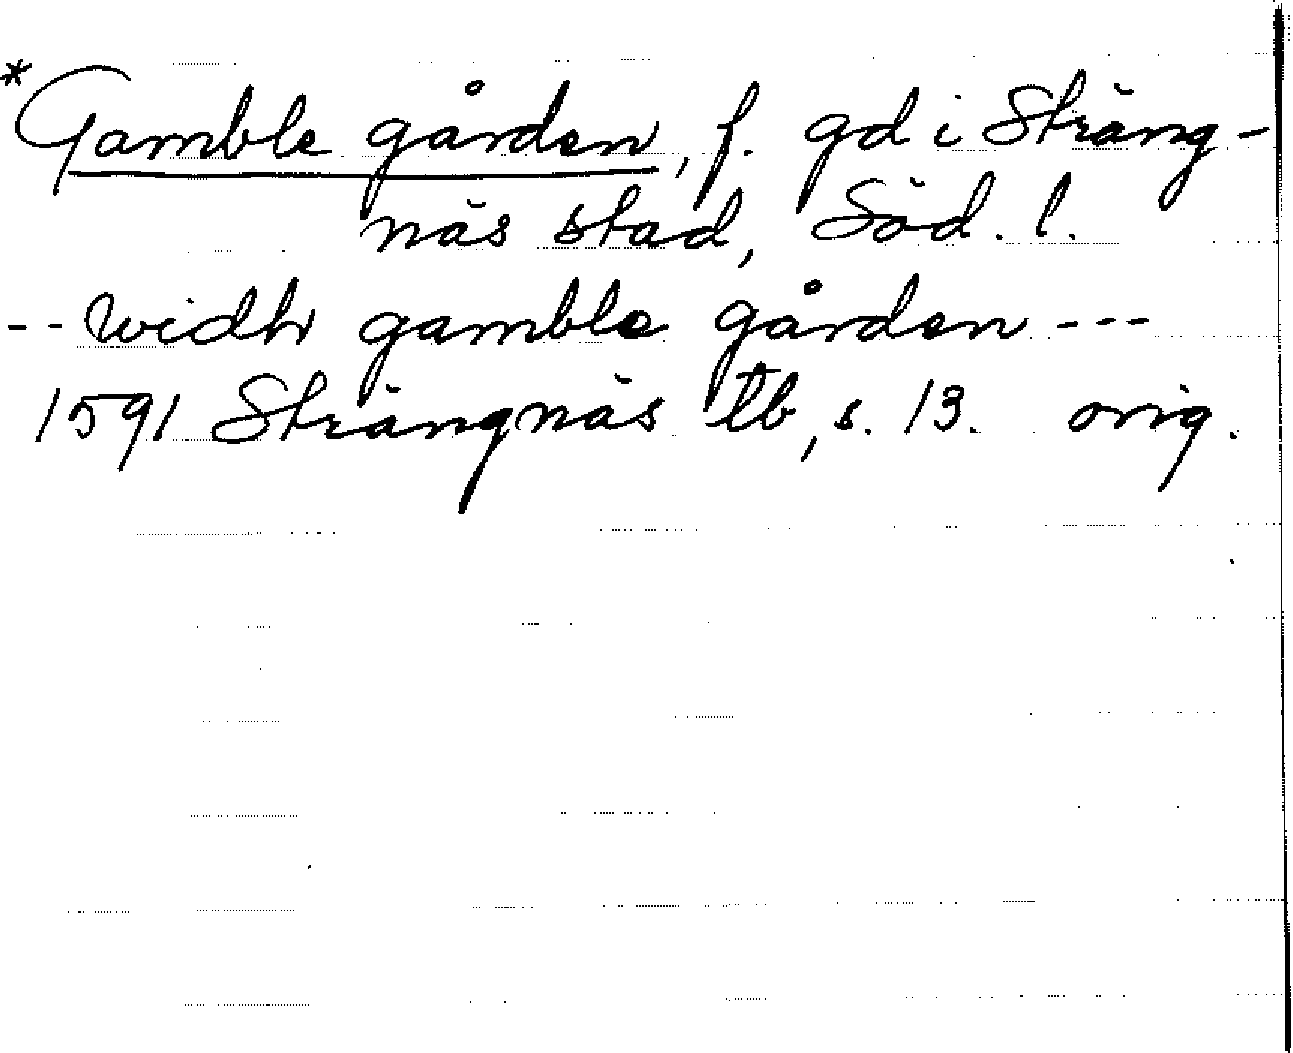 *Gamble gården, f. gd i Sträng-
näs stad, Söd. l.
-- widh gamble gården ---
1591 Strängnäs tb, s. 13. orig.